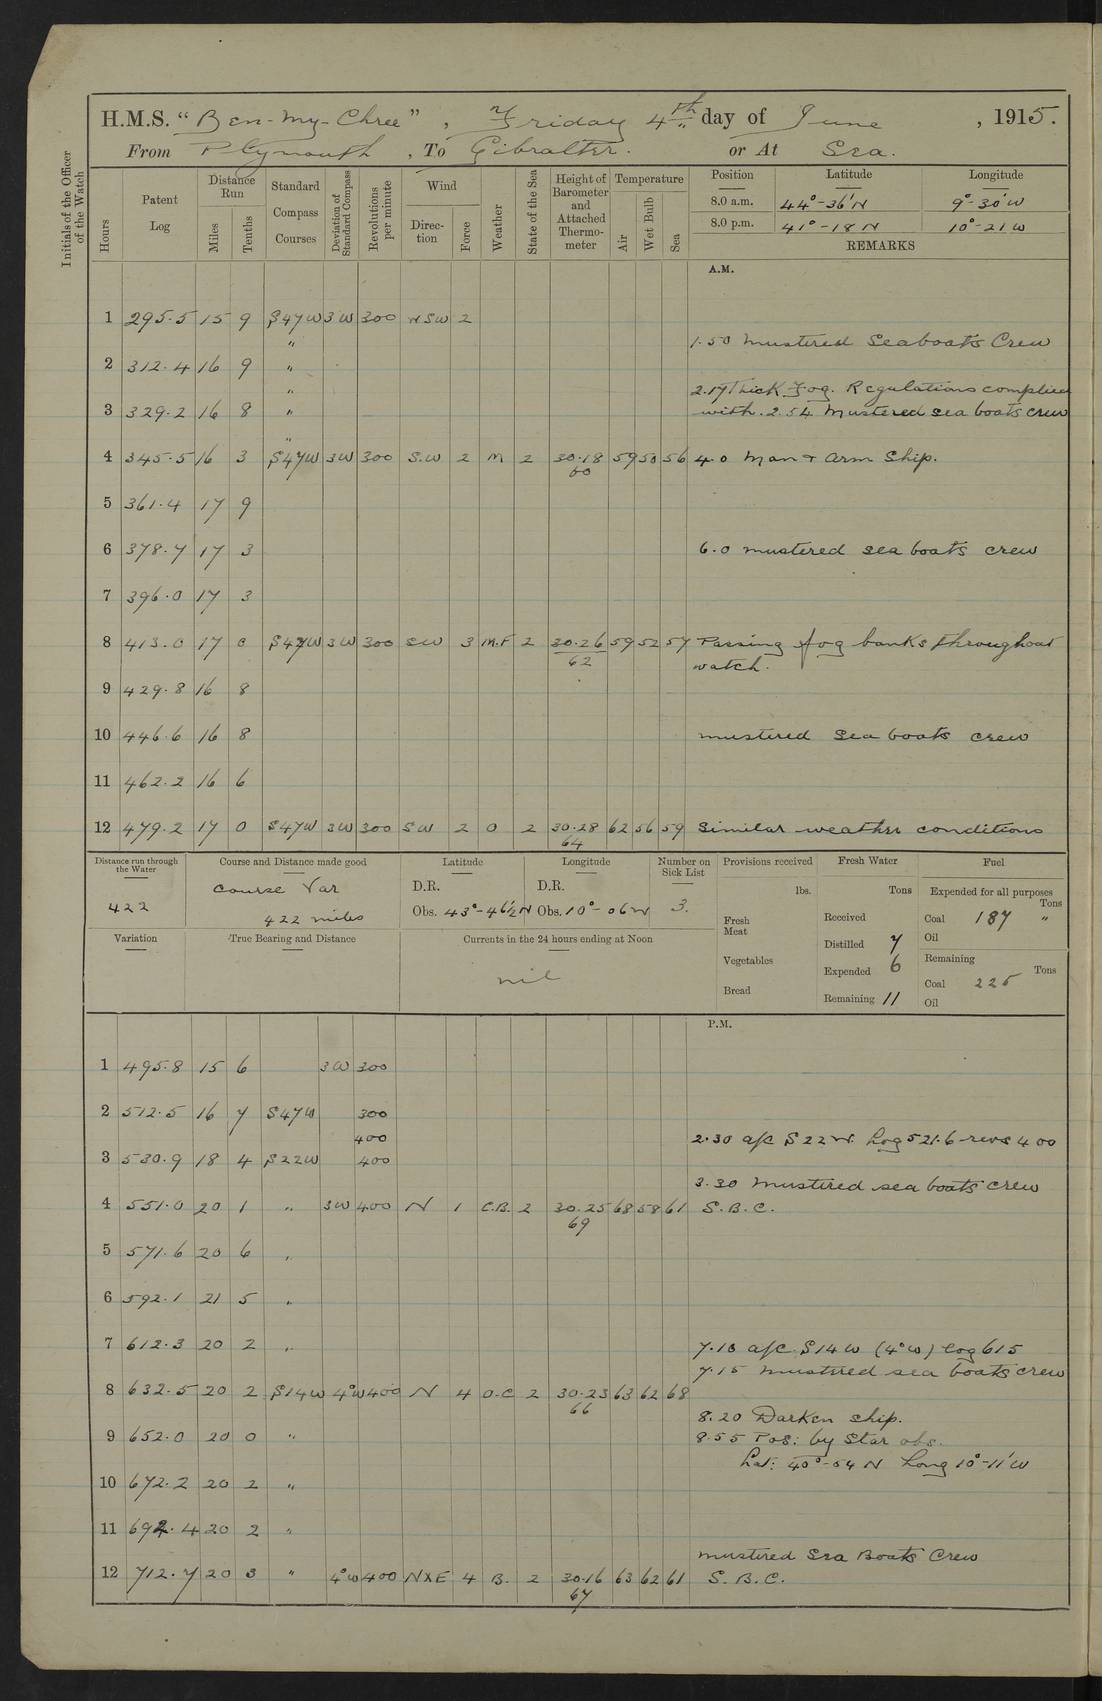 H.M.S. "Ben-my-Chree", Friday 4th day of June, 1915.
From Plymouth, To Gibralter. or At Sea.
Initials of the Officer of the Watch
Hours
Patent Log
Distance Run Miles Tenths
Standard Compass Courses
Deviation of Standard Compass
Revolutions per minute
Wind Direction Force
Weather
State of the Sea
Height of Barometer and Attached Thermometer
Temperature Air Wet Bulb Sea
Position Latitude Longitude
8.0 a.m. 44°-36'N 9°-30'W
8.0 p.m. 41°-18 N 10°-21 W
REMARKS
A.M.
1 295.5 15 9 S47W 3W 300 WSW 2
"
1.50 Mustered Seaboats Crew
2 312.4 16 9 "
"
2.17 Thick Fog. Regulations complied
3 329.2 16 8 " with. 2.54 Mustered sea boats crew
"
4 345.5 16 3 S47W 3W 300 S.W 2 M 2 30.18 59 58 56 4.0 Man + Arm Ship.
60
5 361.4 17 9
6 378.7 17 3 6.0 mustered sea boats crew
7 396.0 17 3
8 413.0 17 0 S47W 3W 300 SW 3 M.F 2 30.26 59 52 57 Passing fog banks throughout
62 watch.
9 429.8 16 8
10 446.6 16 8 mustered Sea boats crew
11 462.2 16 6
12 479.2 17 0 S47W 3W 300 SW 2 O 2 30.28 62 56 59 Similar weather conditions
64
Distance run through the Water 422
Course and Distance made good
Course Var
422 miles
Latitude D.R. Obs. 43°-46½N
Longitude D.R. Obs. 10°-06W
Number on Sick List 3.
Provisions received lbs.
Fresh Meat
Vegetables
Bread
Fresh Water Tons
Received
Distilled 7
Expended 6
Remaining 11
Fuel
Expended for all purposes Tons
Coal 187 "
Oil
Remaining Tons
Coal 225
Oil
Variation
True Bearing and Distance
Currents in the 24 hours ending at Noon
nil
P.M.
1 495.8 15 6 3W 300
2 512.5 16 7 S47W 300
400 2.30 a/c S22W. Log 521.6 - revs 400
3 530.9 18 4 S22W 400
3.30 Mustered sea boats crew
4 551.0 20 1 " 3W 400 N 1 C.B. 2 30.25 68 58 61 S.B.C.
69
5 571.6 20 6 "
6 592.1 21 5 "
7 612.3 20 2 " 7.10 a/c S14W (4°W) Log 615
7.15 mustered sea boats crew
8 632.5 20 2 S14W 4°W 400 N 4 O.C 2 30.23 63 62 68
66
8.20 Darken ship.
9 652.0 20 0 " 8.55 Pos: by Star obs.
Lat: 40°-54 N Long 10°-11'W
10 672.2 20 2 "
11 692.4 20 2 "
mustered Sea Boats Crew
12 712.7 20 3 " 4°W 400 NXE 4 B. 2 30.16 63 62 61 S.B.C.
67